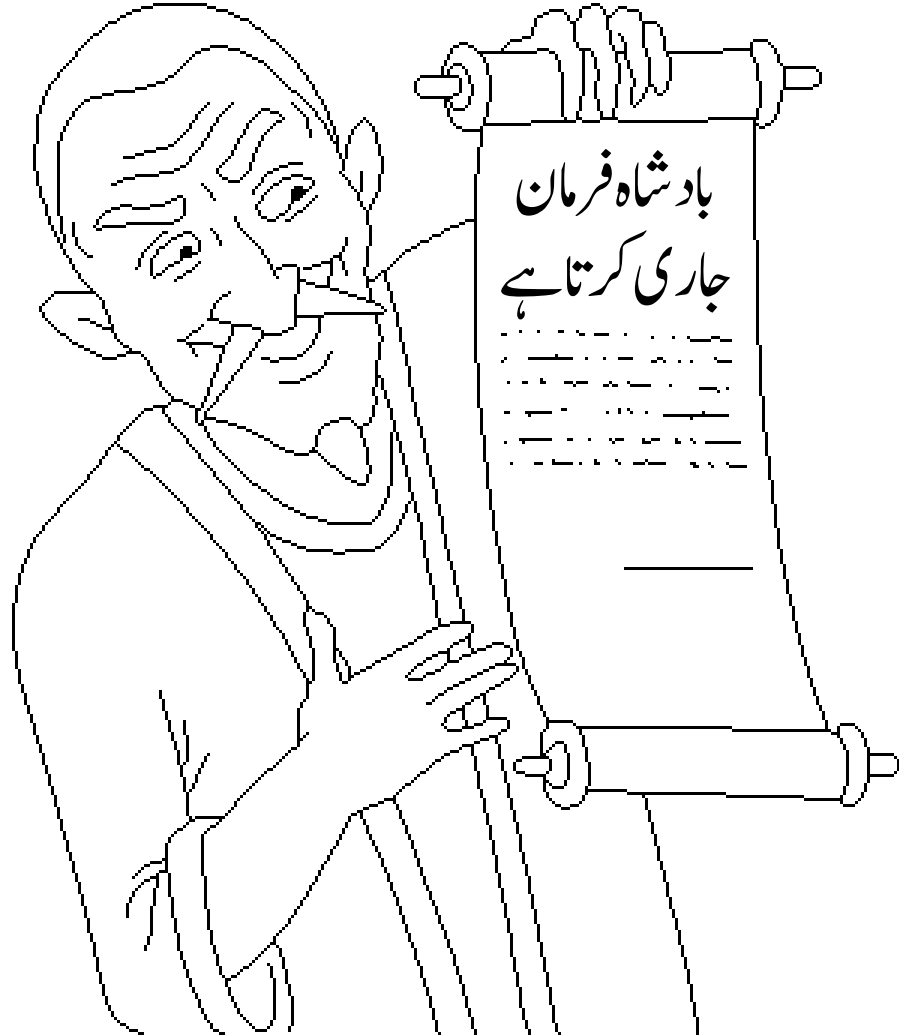 بادشاہ فرمان
جاری کرتا ہے